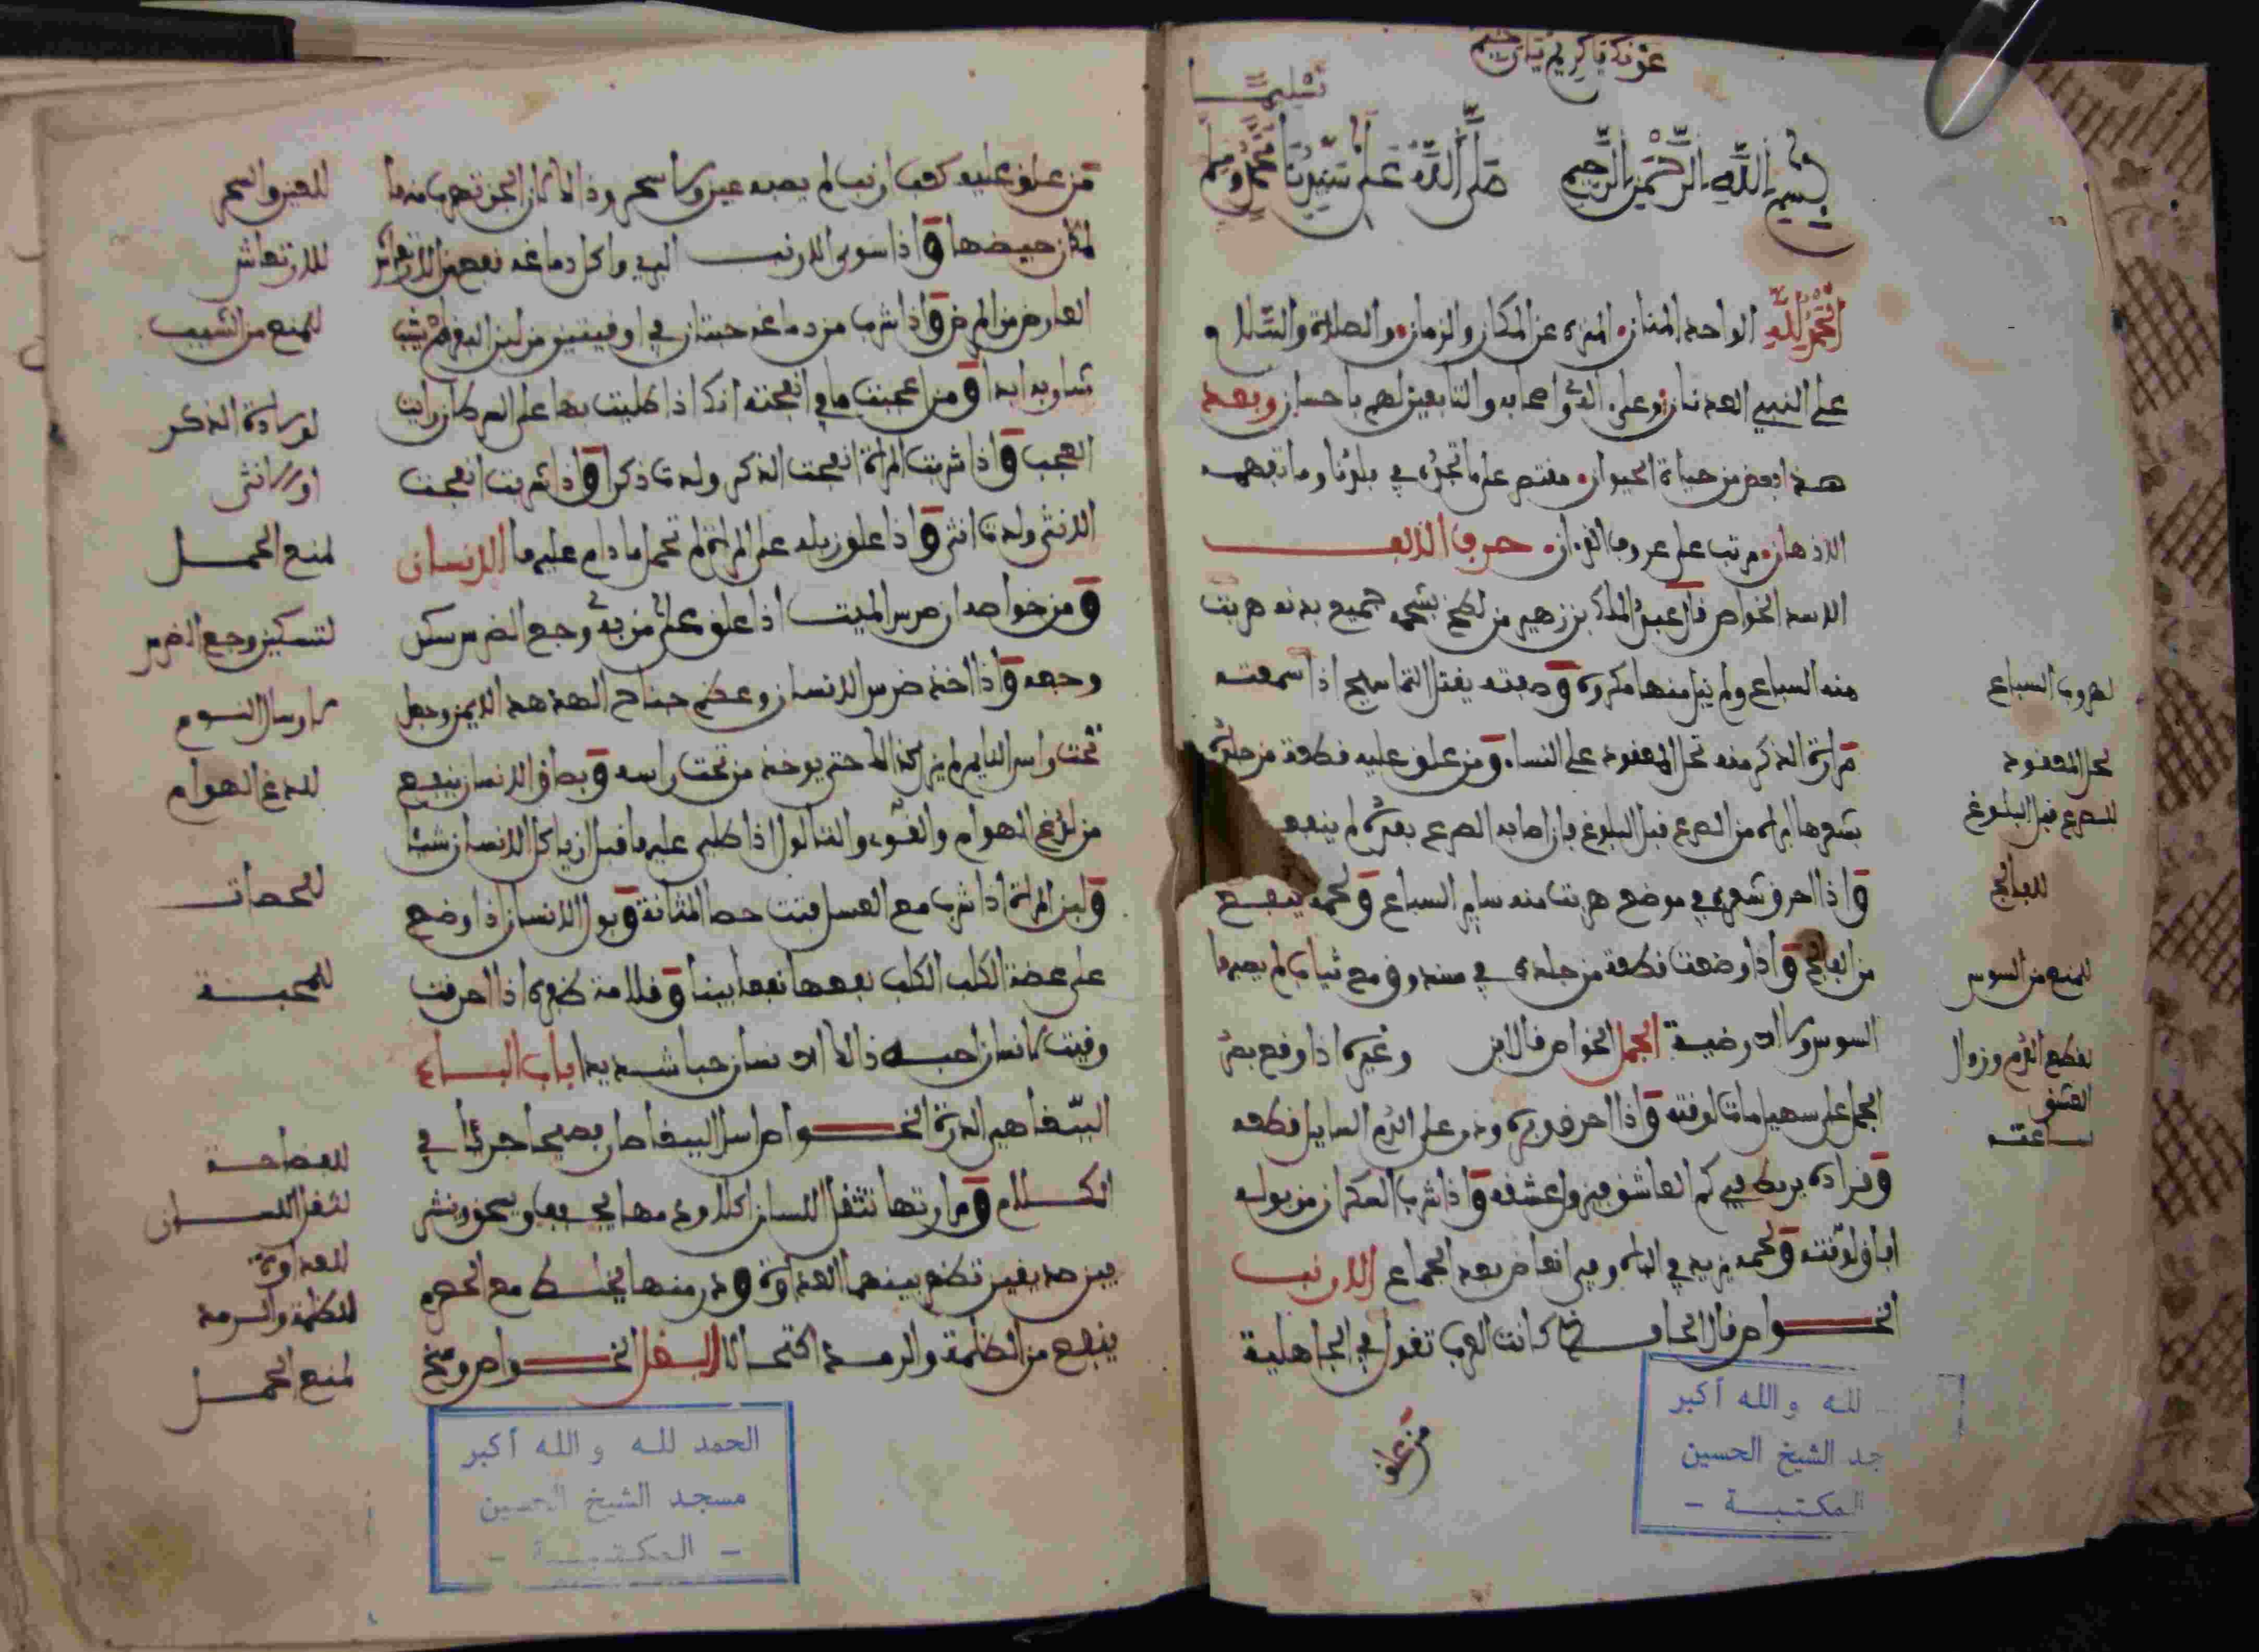 عونك يا كريم يا رحيم
تسليما
بسم الله الرحمن الرحيم صلى الله على سيدنا محمد وسلم
الحمد لله الواحد المنان المنزه عن المكان والزمان والصلاة والسلام
على النبي العدنان وعلى اله واصحابه والتابعين لهم باحسان وبعد
هذا بعض من حياة الحيوان مقتصر على ما تجده في بلدنا وما تفهمه
الاذهان مرتب على حروف القران حرف الالف
الاسد الخواص قال عبد الملك بن زهير من لطخ بشحمه جميع بدنه هربت
منه السباع ولم ينل منها مكروه وصوته يقتل التماسيح اذا سمعته
مرارة الذكر منه تحل المعقود على النساء ومن علق عليه قطعة من جلده
بشعرها ابراه من الصرع قبل البلوغ فان اصابه الصرع بعده لم ينفعه
واذا احرق شعره في موضع هربت منه ساير السباع ولحمه ينفع
من الفالج واذا وضعت قطعة من جلده في صندوق مع ثياب لم يصبها
السوس ولا الارضية الجمل الخواص قال ابن وغيره اذا وقع بصر
الجمل على سهيل مات لوقته واذا احرق وبره وذر على الدم السايل قطعه
وقراده يربط في كم العاشق فيزول عشقه واذا شرب السكران من بوله
افاق لوقته ولحمه يزيد في الباه وفي انعاض بعد الجماع الارنب
الخواص قال الجاحظ كانت العرب تقول في الجاهلية
من علق
لهروب السباع
لحل المعقود
للصرع قبل البلوغ
للفالج
للمنع من السوس
لقطع الدم وزوال
العشق
ساعته
لله والله أكبر
جد الشيخ الحسين
المكتبة -
من علق عليه كعب ارنب لم يصبه عين ولا سحر وذالك لان الجن تهرب منها
لمكان حيضها واذا شوي الارنب البري واكل دماغه نفع من الارتعاش
العارض من المرض واذا شرب من دماغه حبتان في اوقيتين من لبن البقر لم يشب
شاربه ابدا ومن اعجب ما في انفحته انك اذا طليت بها على السرطان رايت
العجب واذا شربت المراة انفحت الذكر ولدت ذكرا واذا شربت انفحت
الانثى ولدت انثى واذا علق زبله على المراة لم تحمل ما دام عليها الانسان
ومن خواصه ان ضرس الميت اذا علق على من به وجع الضرس سكن
وجعه واذا اخذ ضرس الانسان وعظم جناح الهدهد الايمن وجعل
تحت راس النايم لم يزل كذالك حتى يوخذ من تحت راسه وبصاق الانسان ينفع
من لدغ الهوام والقوبه والثالول اذا طلي عليها قبل ان ياكل الانسان شيئا
ولبن المراة اذا شرب مع العسل فتت حصا المثانة وبول الانسان اذا وضع
على عضة الكلب الكلب نفعها نفعا بينا وقلامة ظفره اذا احرقت
وسقيت لانسان احبه ذالك الانسان حبا شديدا باب الباء
الببغا هي الدرة الخواص لسان الببغا صار فصيحا جريئا في
الكلام ومرارتها تثقل اللسان اكلا ودمها يجفف ويسحق وينثر
بين صديقين تظهر بينهما العداوة وذرقها يخلط مع الحصرم
ينفع من الظلمة والرمد اكتحالا البغل الخواص ومخ
للعين والسحر
للارتعاش
للمنع من الشيب
لولادة الذكر
او الانثى
لمنع الحمل
لتسكين وجع الضرس
لارسال النوم
للدغ الهوام
للحصات
للمحبة
للفصاحة
لثقل اللسان
للعداوة
للظلمة والرمد
لمنع الحمل
الحمد لله والله أكبر
مسجد الشيخ الحسين
- المكتبة -